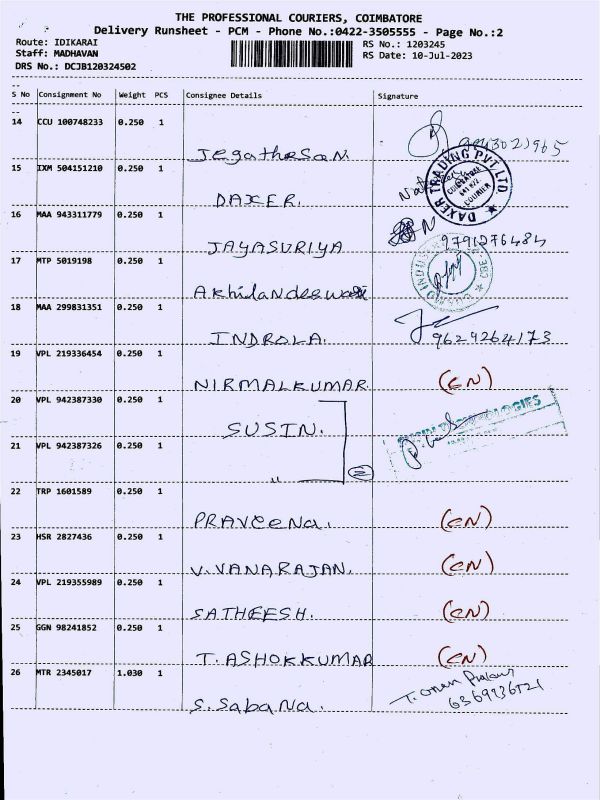 THE PROFESSIONAL COURIERS, COIMBATORE
Delivery Runsheet - PCM - Phone No.:0422-3505555 - Page No.:2
Route: IDIKARAI
Staff: MADHAVAN
DRS No.: DCJB120324502
RS No.: 1203245
RS Date: 10-Jul-2023
S No Consignment No Weight PCS Consignee Details Signature
14 CCU 100748233 0.250 1
Jegathesan
15 IXM 504151210 0.250 1
DAXER.
DAXER TRADING PVT. LTD.
16 MAA 943311779 0.250 1
JAYASURIYA
9791276484
17 MTP 5019198 0.250 1
Akhilandeswari
18 MAA 299831351 0.250 1
INDROLA.
9629264173
19 VPL 219336454 0.250 1
NIRMALKUMAR. (CN)
20 VPL 942387330 0.250 1
SUSIN.
21 VPL 942387326 0.250 1
" 2
22 TRP 1601589 0.250 1
PRAVEENA. (CN)
23 HSR 2827436 0.250 1
V. VANARAJAN. (CN)
24 VPL 219355989 0.250 1
SATHEESH. (CN)
25 GGN 98241852 0.250 1
T. ASHOKKUMAR (CN)
26 MTR 2345017 1.030 1
S. Sabana.